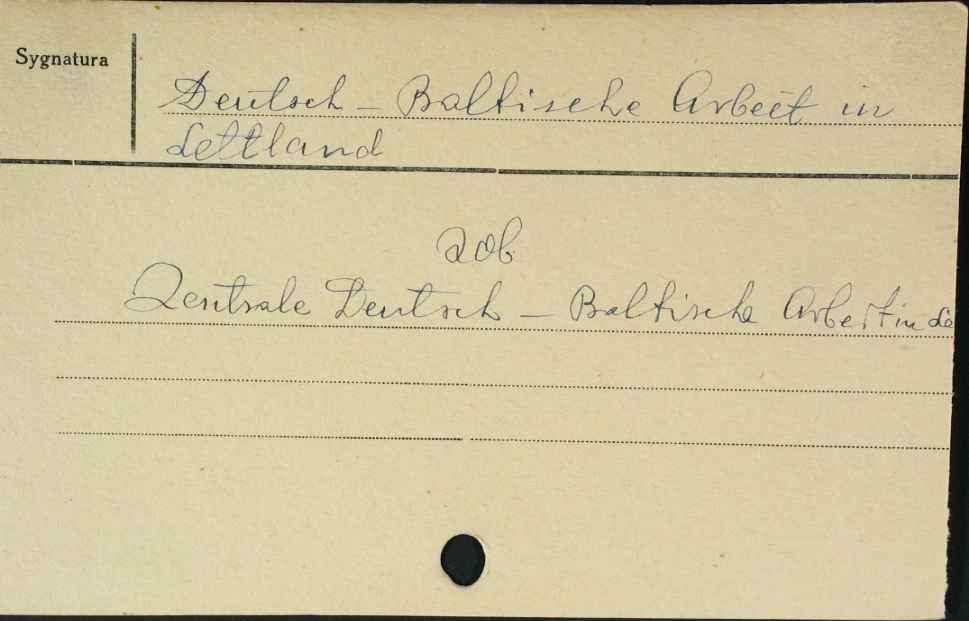 Sygnatura
Deutsch - Baltische Arbeit in
Lettland
zob
Zentrale Deutsch - Baltische Arbeit in Le